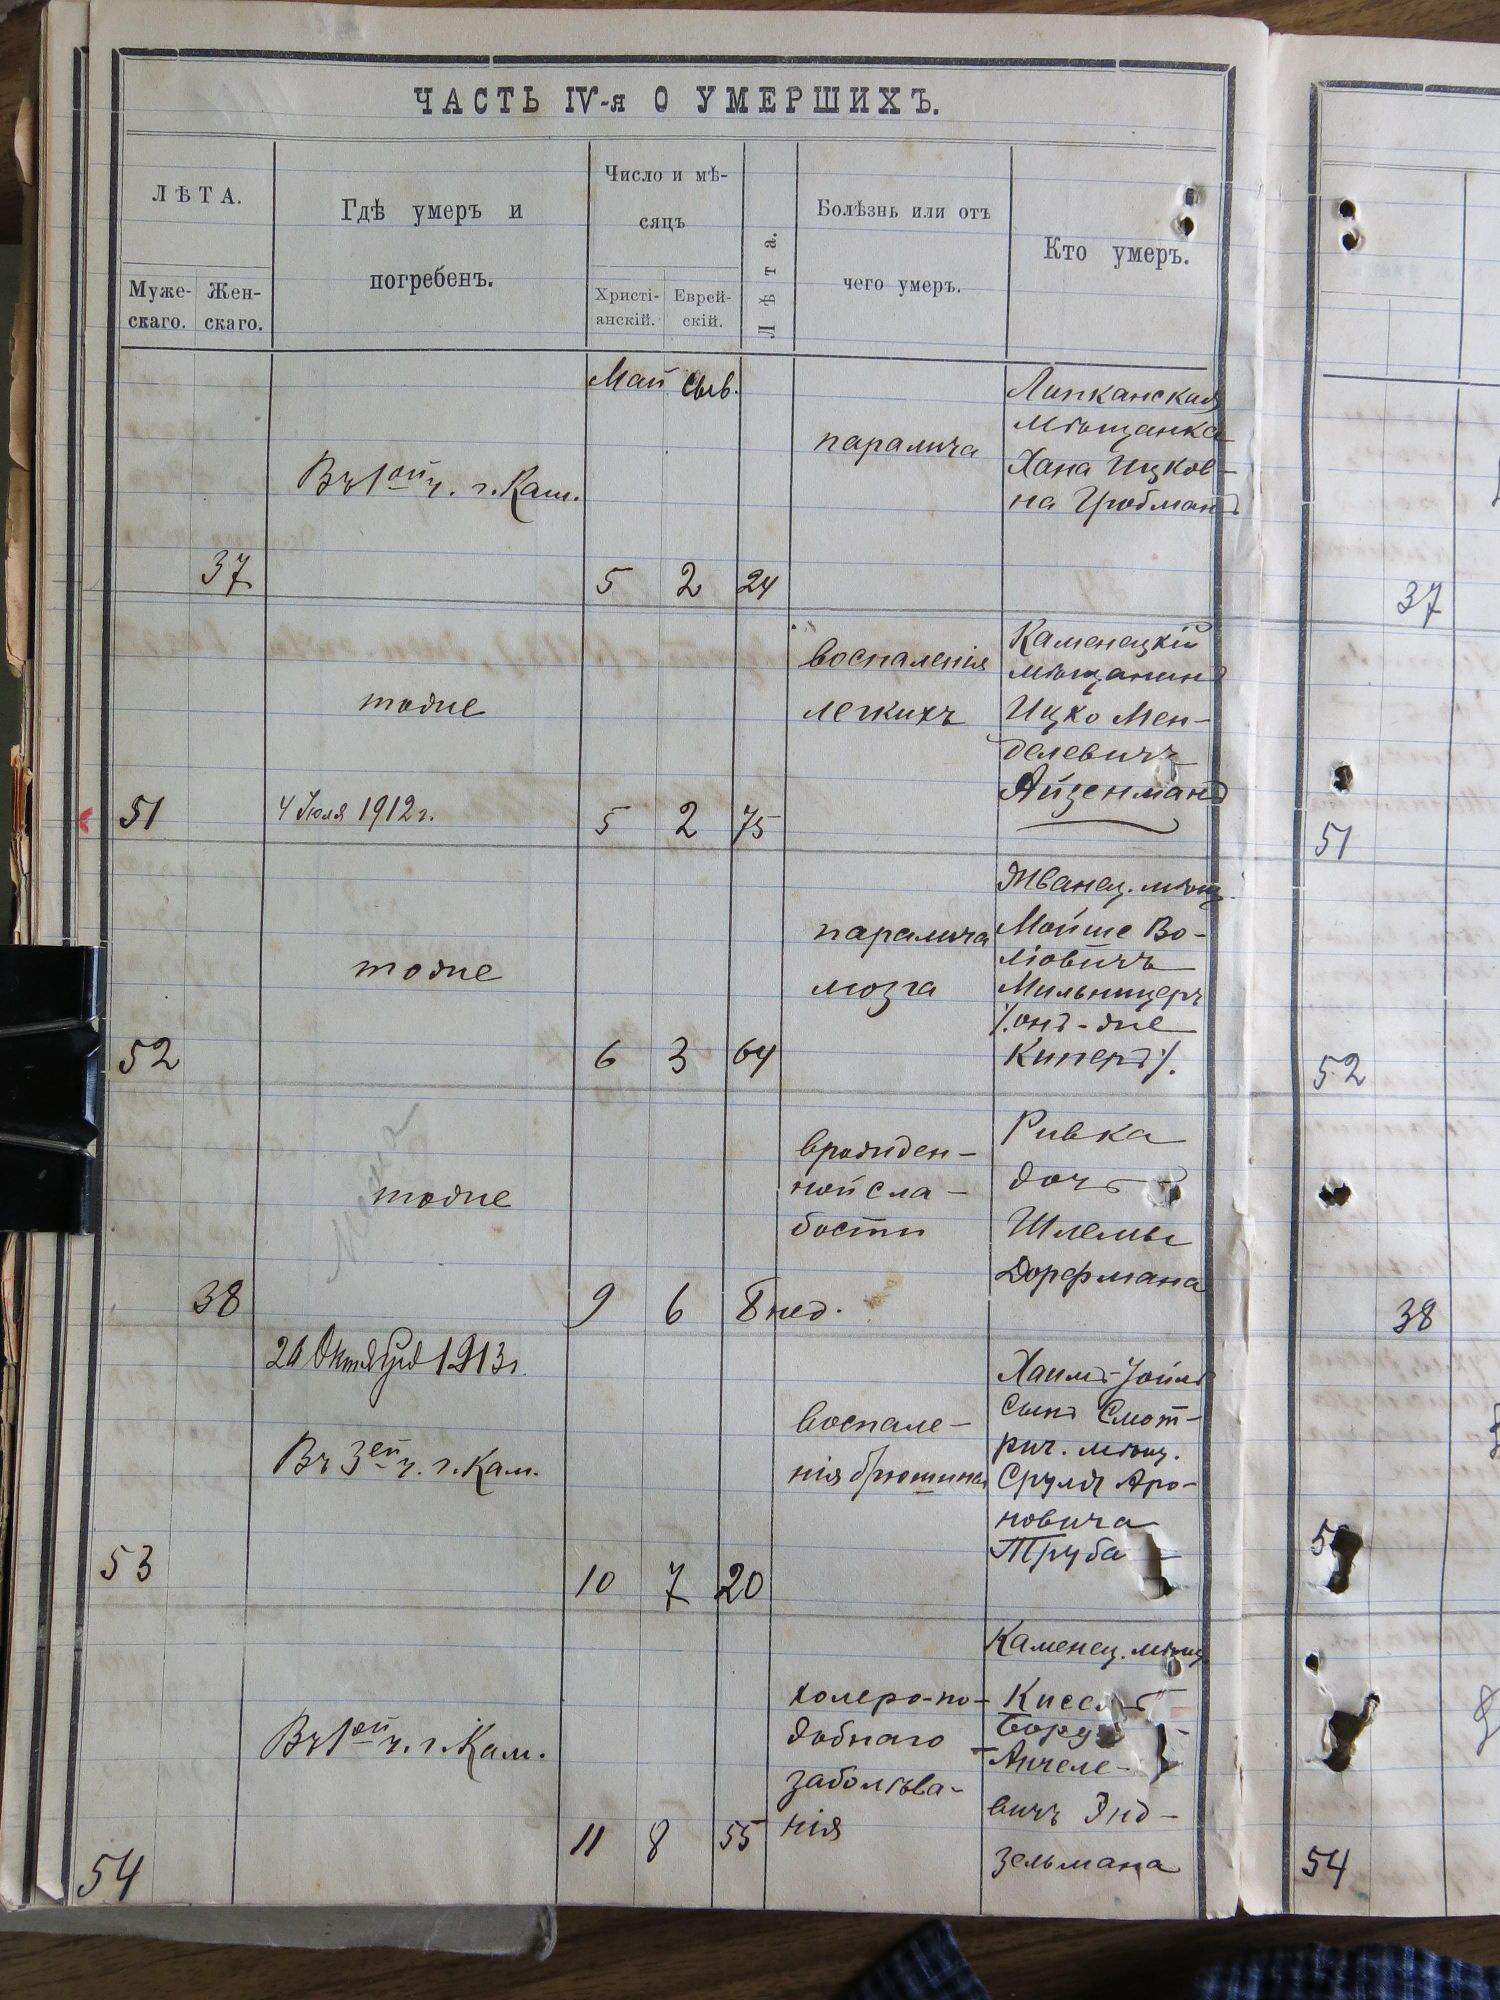 ЧАСТЬ IV-я О УМЕРШИХЪ.
ЛѢТА.
Муже-
скаго.
Жен-
скаго.
Гдѣ умеръ и
погребенъ.
Число и мѣ-
сяцъ
Христі-
анскій.
Еврей-
скій.
Лѣта.
Болѣзнь или отъ
чего умеръ.
Кто умеръ.
Май Сыв.
37
Въ 1ой ч. г. Кам.
5 2 24
паралича
Липканская
мѣщанка
Хана Ицков-
на Гробманъ
37
51
тоже
4 Іюля 1912 г.
5 2 75
воспаленія
легкихъ
Каменецкій
мѣщанинъ
Ицко Мен-
делевичъ
Айзенманъ
51
52
тоже
6 3 64
паралича
мозга
Жванец. мѣщ.
Мойше Во-
ліовичъ
Мильницеръ
/. онъ-же
Киперъ /.
52
38
тоже
9 6 8 нед.
врожден-
ной сла-
бости
Ривка
дочь
Шлемы
Дорфмана
38
53
Октября 1913 г.
Въ 3ей ч. г. Кам.
10 7 20
воспале-
нія брюшины
Хаимъ-Іойль
сынъ Смот-
рич. мѣщ.
Сруля Аро-
новича
Труба
54
Въ 1ой ч. г. Кам.
11 8 55
холеро-по-
добнаго
заболѣва-
нія
Каменец. мѣщ.
вичъ Энд-
зельмана
54